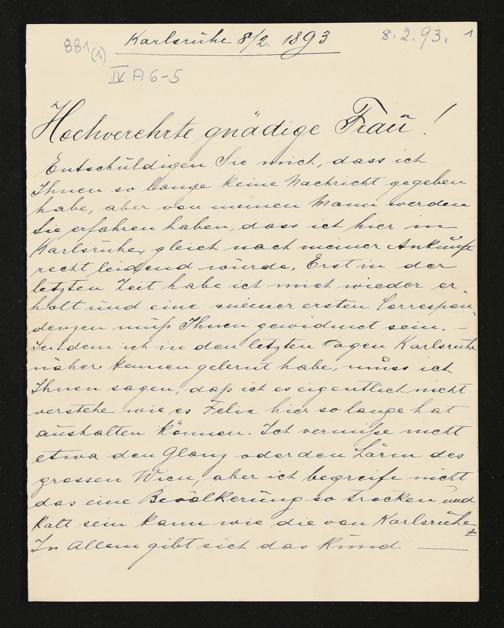 881 (1)
Karlsruhe 8/2. 1893
8.2.93. 1
IV A 6-5
Hochverehrte gnädige Frau!
Entschuldigen Sie mich, dass ich
Ihnen so lange keine Nachricht gegeben
habe, aber von meinen Mann werden
Sie erfahren haben, dass ich hier in
Karlsruhe, gleich nach meiner Ankunft
recht leidend wurde, Erst in der
letzten Zeit habe ich mich wieder er-
holt und eine meiner ersten Correspon-
denzen muß Ihnen gewidmet sein. –
Indem ich in den letzten Tagen Karlsruhe
näher kennen gelernt habe, muss ich
Ihnen sagen, daß ich es eigentlich nicht
verstehe wie es Felix hier so lange hat
aushalten können. Ich vermiße nicht
etwa den Glanz oder den Lärm des
grossen Wien, aber ich begreife nicht
das eine Bevölkerung so trocken und
kalt sein kann wie die von Karlsruhe
In Allem gibt sich das kund. —